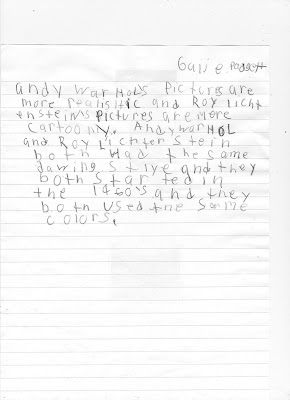 andy warHols Pictures are
more realisitic and Roy licht
ensteins Pictures are more
cartoony. Andy warHOL
and Roy Lichten Stein
both Had the same
dawing Stlye and they
both Star ted in
the 1960's and they
both used the same
colors.